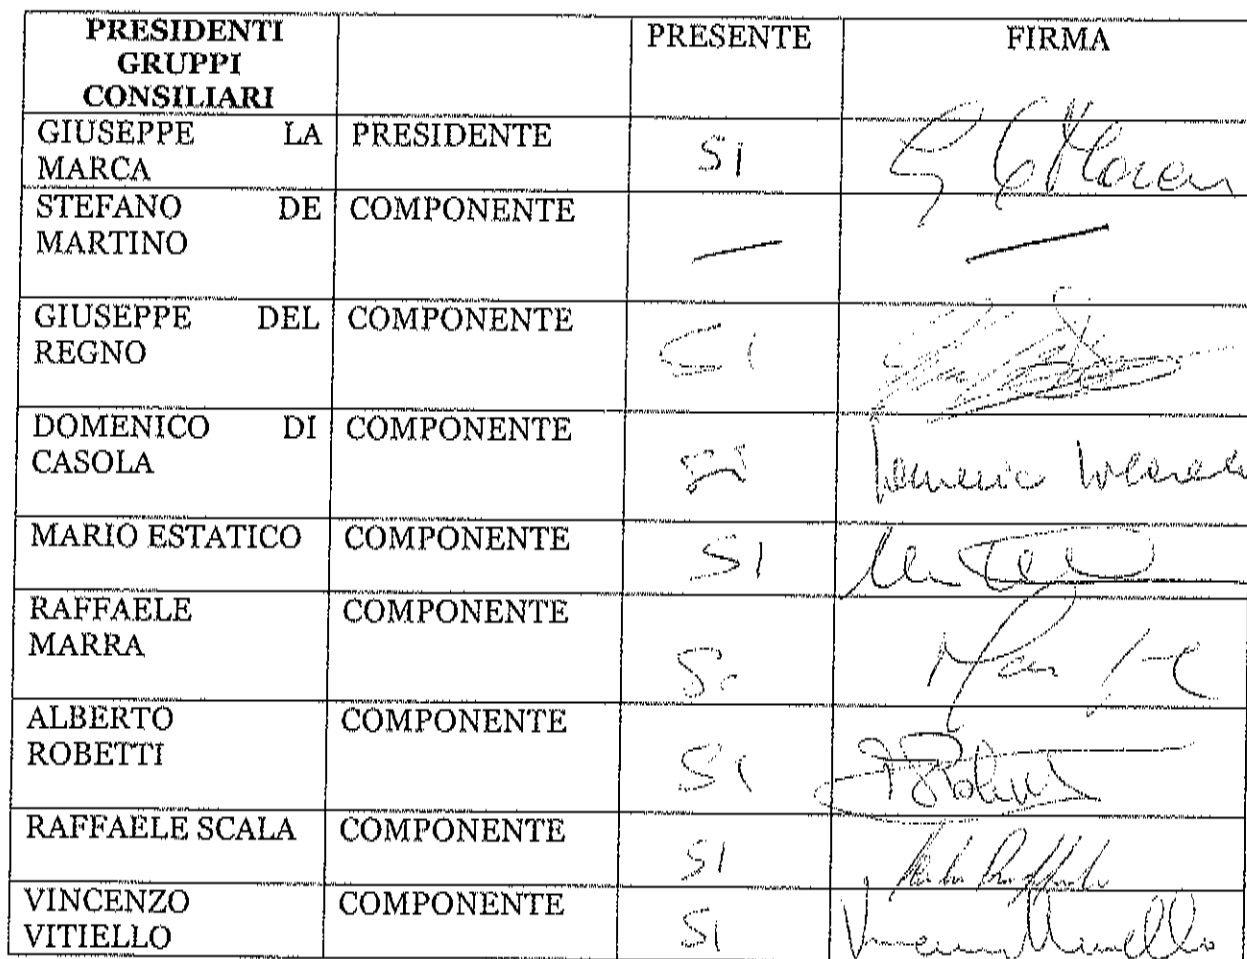 PRESIDENTI
GRUPPI
CONSILIARI
PRESENTE
FIRMA
GIUSEPPE LA
MARCA
PRESIDENTE
SI
STEFANO DE
MARTINO
COMPONENTE
—
—
GIUSEPPE DEL
REGNO
COMPONENTE
SI
DOMENICO DI
CASOLA
COMPONENTE
SI
MARIO ESTATICO
COMPONENTE
SI
RAFFAELE
MARRA
COMPONENTE
Si
ALBERTO
ROBETTI
COMPONENTE
SI
RAFFAELE SCALA
COMPONENTE
SI
VINCENZO
VITIELLO
COMPONENTE
SI